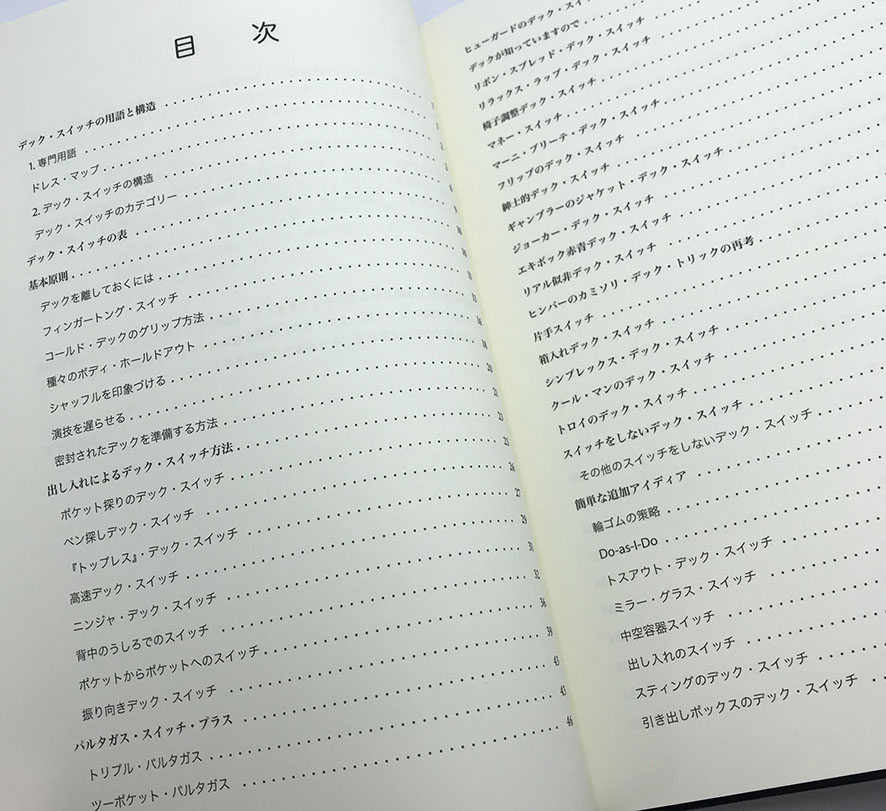 目 次
デック・スイッチの用語と構造
1. 専門用語
ドレス・マップ
2. デック・スイッチの構造
デック・スイッチのカテゴリー
デック・スイッチの表
基本原則
デックを離しておくには
フィンガートング・スイッチ
コールド・デックのグリップ方法
種々のボディ・ホールドアウト
シャッフルを印象づける
演技を遅らせる
密封されたデックを準備する方法
出し入れによるデック・スイッチ方法
ポケット探りのデック・スイッチ
ペン探しデック・スイッチ
『トップレス』・デック・スイッチ
高速デック・スイッチ
ニンジャ・デック・スイッチ
背中のうしろでのスイッチ
ポケットからポケットへのスイッチ
振り向きデック・スイッチ
パルタガス・スイッチ・プラス
トリプル・パルタガス
ツーポケット・パルタガス
ヒューガードのデック・スイッ
デックが知っていますので
リボン・スプレッド・デック・スイッチ
リラックス・ラップ・デック・スイッチ
椅子調整デック・スイッチ
マネー・スイッチ
マーニ・ブリーテ・デック・スイッチ
フリップのデック・スイッチ
紳士的デック・スイッチ
ギャンブラーのジャケット・デック・スイッチ
ジョーカー・デック・スイッチ
エキボック赤青デック・スイッチ
リアル似非デック・スイッチ
ヒンバーのカミソリ・デック・トリックの再考
片手スイッチ
箱入れデック・スイッチ
シンプレックス・デック・スイッチ
クール・マンのデック・スイッチ
トロイのデック・スイッチ
スイッチをしないデック・スイッチ
その他のスイッチをしないデック・スイッチ
簡単な追加アイディア
輪ゴムの策略
Do-as-I-Do
トスアウト・デック・スイッチ
ミラー・グラス・スイッチ
中空容器スイッチ
出し入れのスイッチ
スティングのデック・スイッチ
引き出しボックスのデック・スイッチ